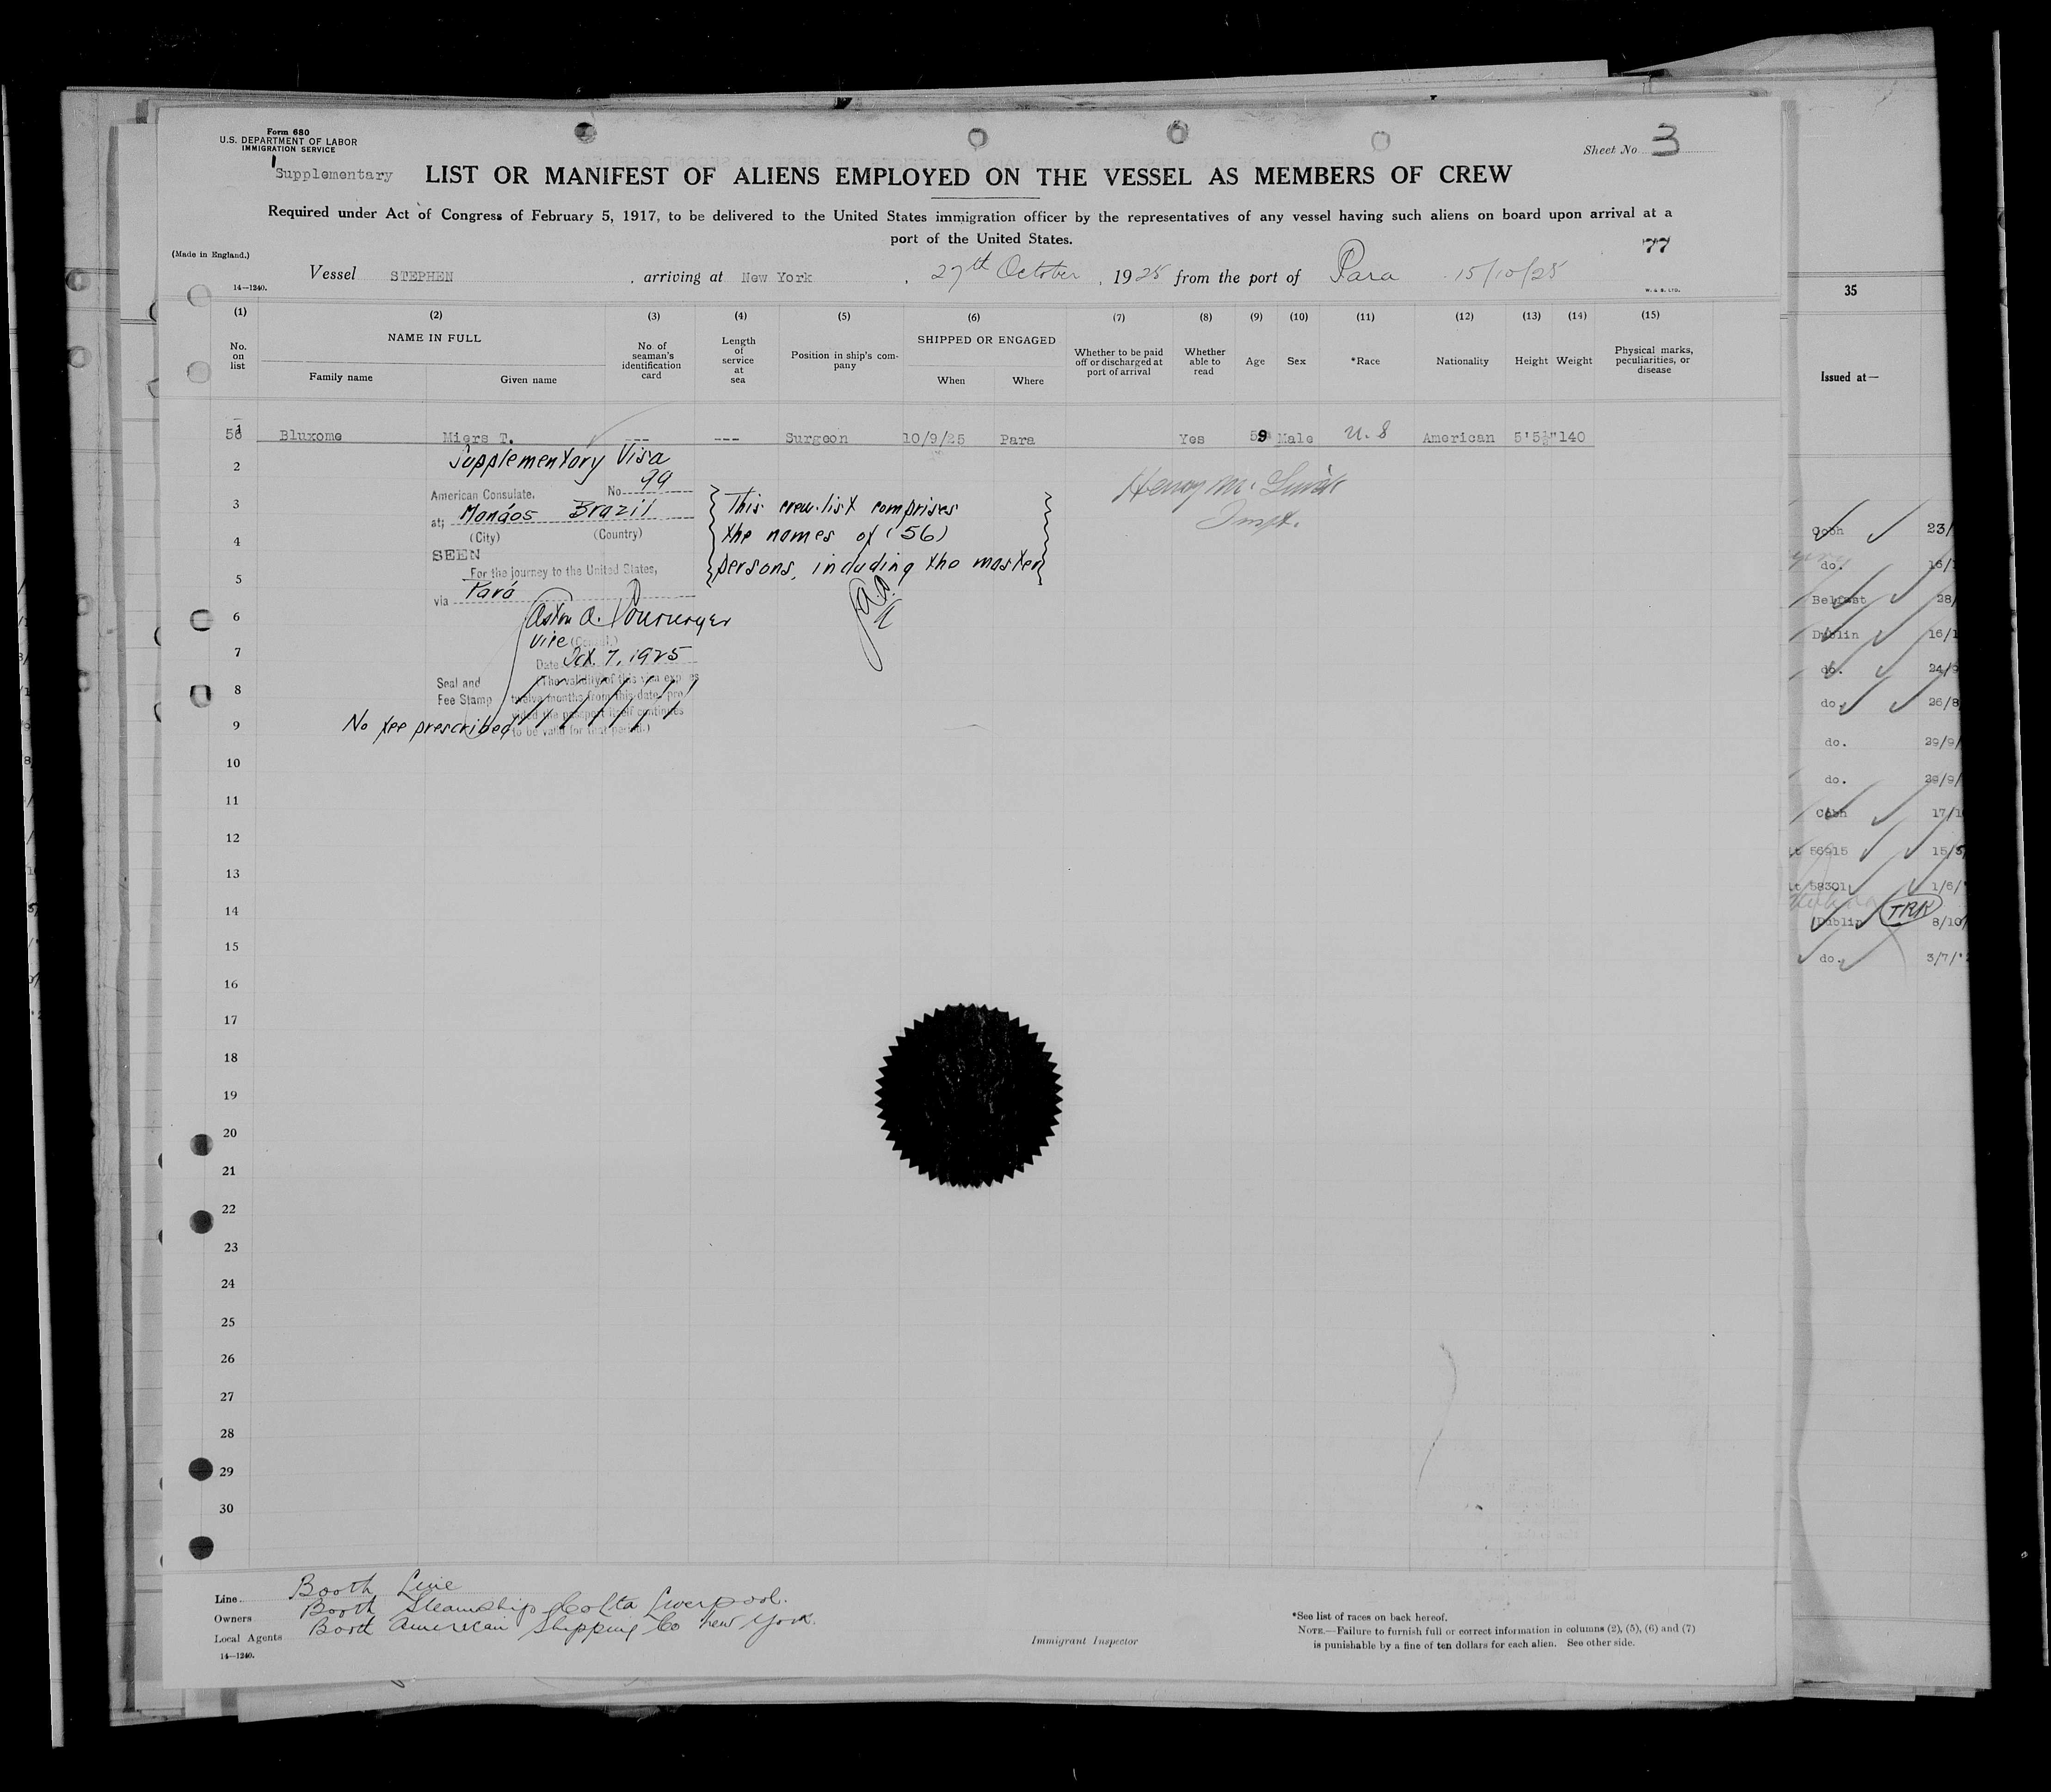 Form 680
U.S. DEPARTMENT OF LABOR
IMMIGRATION SERVICE
Sheet No. 3
Supplementary LIST OR MANIFEST OF ALIENS EMPLOYED ON THE VESSEL AS MEMBERS OF CREW
Required under Act of Congress of February 5, 1917, to be delivered to the United States immigration officer by the representatives of any vessel having such aliens on board upon arrival at a
port of the United States.
77
(Made in England.)
Vessel STEPHEN, arriving at New York, 27th October, 1925 from the port of Para 15/10/25
14—1240.
W. & S. LTD.
(1) (2) (3) (4) (5) (6) (7) (8) (9) (10) (11) (12) (13) (14) (15)
No. on list
NAME IN FULL
Family name
Given name
No. of seaman's identification card
Length of service at sea
Position in ship's company
SHIPPED OR ENGAGED
When
Where
Whether to be paid off or discharged at port of arrival
Whether able to read
Age
Sex
*Race
Nationality
Height
Weight
Physical marks, peculiarities, or disease
1 56 Bluxome Miers T. --- --- Surgeon 10/9/25 Para Yes 59 Male U.S American 5'5½" 140
2
3
4
5
6
7
8
9
10
11
12
13
14
15
16
17
18
19
20
21
22
23
24
25
26
27
28
29
30
Supplementary Visa
American Consulate. No. 99
at; Manáos Brazil
(City) (Country)
SEEN
For the journey to the United States,
via Pará
Vice (Consul.)
Date Oct. 7, 1925
Seal and
Fee Stamp
(The validity of this visa expires
twelve months from this date, pro
vided the passport itself continues
to be valid for that period.)
No fee prescribed
This crew list comprises
the names of (56)
persons, including the master
Henry M.
Inspt.
Line Booth Line
Owners Booth Steamship Co Ltd Liverpool.
Local Agents Booth American Shipping Co New York.
14—1240.
Immigrant Inspector
*See list of races on back hereof.
NOTE.—Failure to furnish full or correct information in columns (2), (5), (6) and (7)
is punishable by a fine of ten dollars for each alien. See other side.
35
Issued at—
Cobh 23/
do. 16/1
Belfast 28/
Dublin 16/1
do. 24/9
do. 26/8
do. 29/9/
do. 29/9/
Cobh 17/1
56915 15/5
58301 1/6/
Dublin TRK 8/10/
do. 3/7/